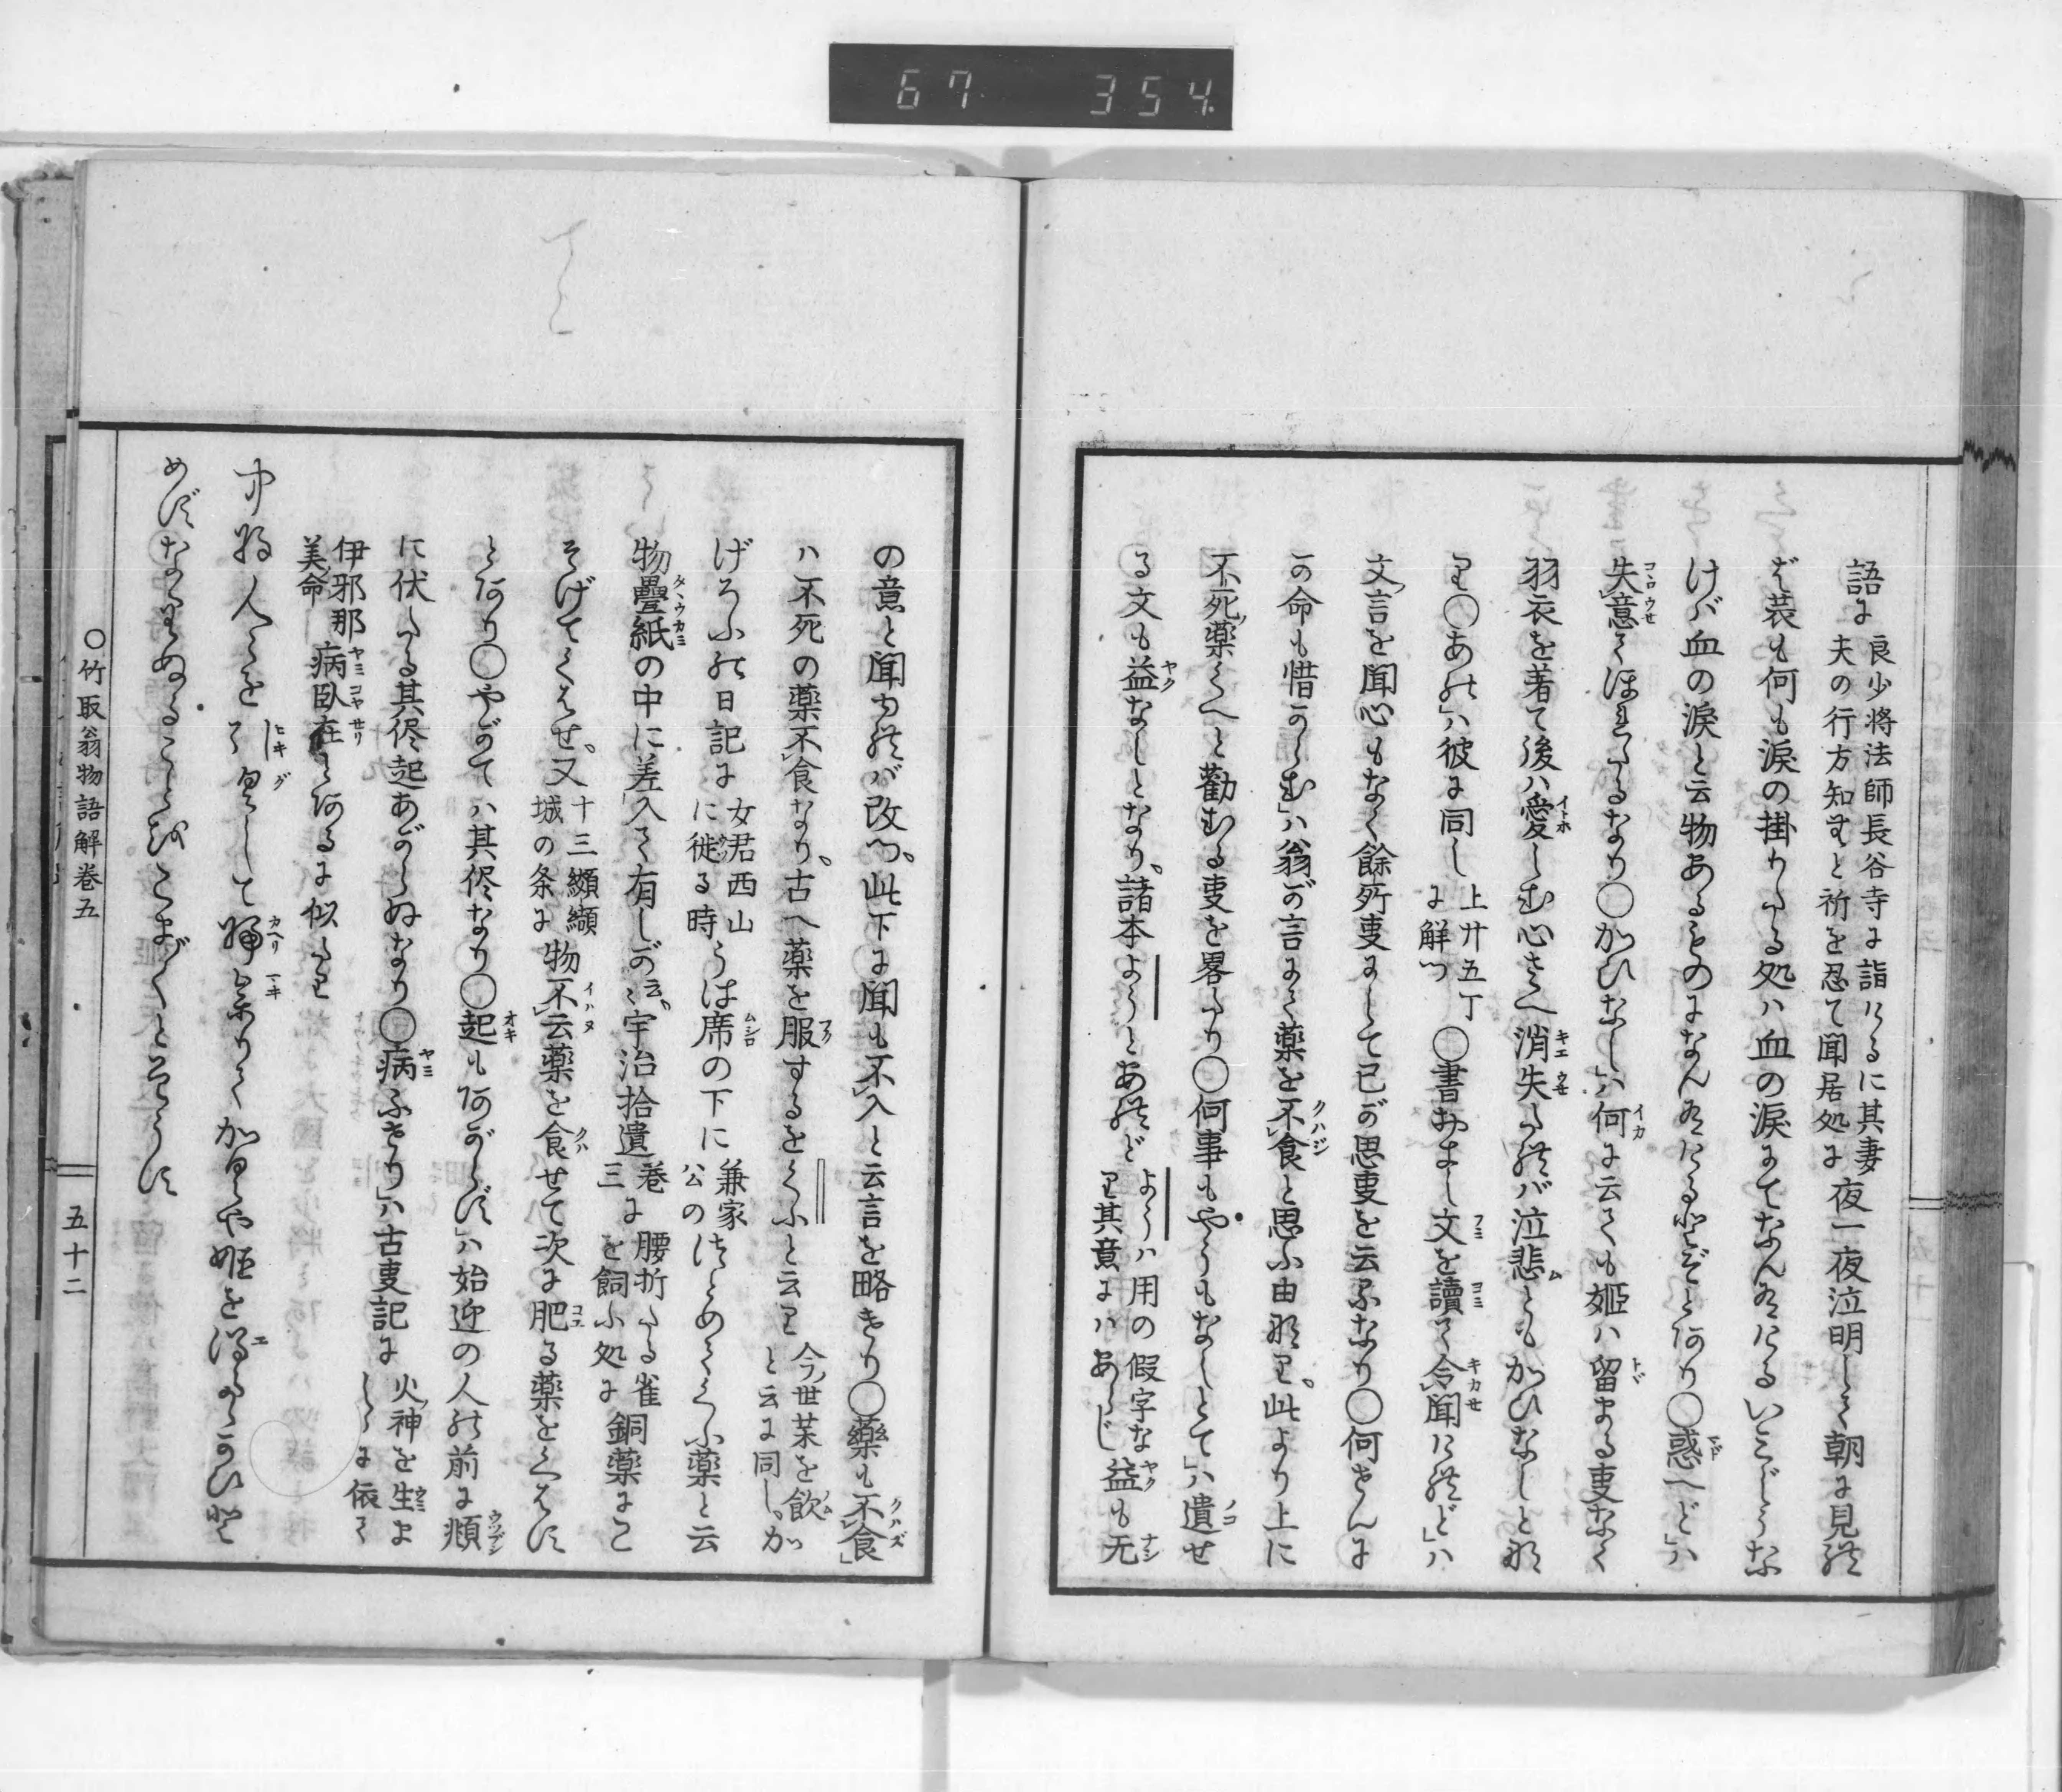 67 354
語に 良少将法師長谷寺に詣けるに其妻 夫の行方知せむと祈を忍て聞居処に 夜一夜泣明して朝に見れ
ば蓑も何も涙の掛りたる処ハ血の涙にてなん有けるいみじうな
けバ血の涙と云物あるものになん有けるとぞとあり〇惑へど」ハ
失意てほれたるなり〇かひなし」ハ何に云ても姫ハ留まる事なく
羽衣を着て後ハ愛しむ心さへ消失たれバ泣悲ともかひなしとな
り〇あれ」ハ彼に同し 上廿五丁 に解つ 〇書おきし文を読て令聞けれど」ハ
文言を聞心もなく餘所事にして己が思事を云るなり〇何せんに
か命も惜からむ」ハ翁が言にて薬を不食と思ふ由なり。此より上に
不死薬くへと勸むる事を畧たり〇何事もやうもなしとて」ハ遺せ
る文も益なしとなり。諸本ようとあれど ようハ用の假字な り其意にハあらじ 益も无
の意と聞ゆれバ改つ。此下に聞も不入と云言を略きり〇藥も不食」
ハ不死の薬不食なり。古へ薬を服するをくふと云り 今世茶を飲 と云に同し。 か
げろふ能日記に 女君西山 に徙る時 うは席の下に 兼家 公の つとめてくふ薬と云
物疊紙の中に差入て有しが云〻宇治拾遺 巻 三に 腰折たる雀 を飼ふ処に 銅薬にこ
そげてくはせ。又 十三纐纈 城の条に 物不云薬を食せて次に肥る薬をくはす
とあり〇やがてハ其侭なり〇起もあがらず」ハ始迎の人能前に頫
に伏たる其侭起あがらぬなり〇病ふせり」ハ古事記に 火神を生ま しゝに依て
伊邪那 美命 病臥在とあるに似たり
中将人〻をひき具して帰参りてかぐや姫を得たゝかひと
めずなりぬることをこまごまとそうす
〇竹取翁物語解巻五
五十二